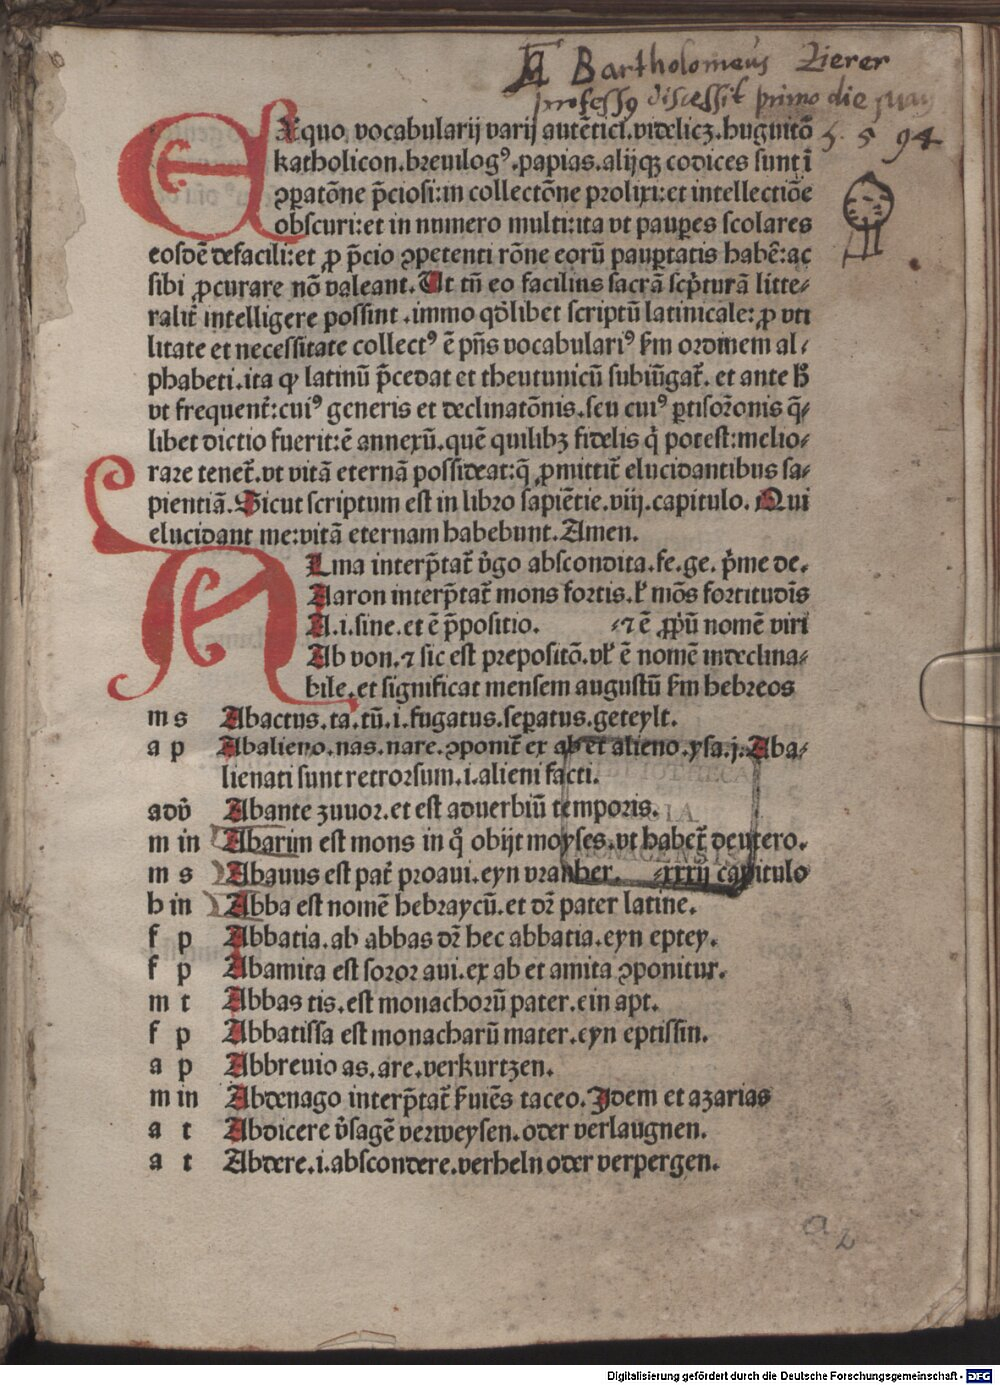 Bartholomeus Zierer
professꝰ discessit primo die
1594
EXquo vocabularij varij autētici.videlicꝫ.huguitō
katholicon.breuilogꝰ.papias.alijqꝫ codices sunt ī
ꝯꝑatōne p̄ciosi:in collectōne prolixi:et intellectiōe
obscuri:et in numero multi:ita vt pauꝑes scolares
eosdē defacili:et ꝓ p̄cio ꝯpetenti rōne eorū pauꝑtatis habē:ac
sibi ꝓcurare nō valeant.Ut tn̄ eo facilius sacrā scp̄turā litte⸗
ralit̄ intelligere possint.immo qd̄libet scriptū latinicale:ꝓ vti
litate et necessitate collectꝰ ē pn̄s vocabulariꝰ ẜm ordinem al⸗
phabeti.ita ꝙ latinū p̄cedat et theutunicū subiūgat̄.et ante h̄
vt frequent̄:cuiꝰ generis et declinatōnis.seu cuiꝰ ꝑtisoꝛonis q̄⸗
libet dictio fuerit:ē annexū.quē quilibꝫ fidelis q̇ potest:melio⸗
rare tenet̄.vt vitā eternā possideat:q̄ ꝓmittit̄ elucidantibus sa⸗
pientiā.Sicut scriptum est in libro sapiētie.viij.capitulo.Qui
elucidant me:vitā eternam habebunt.Amen.
ALma interp̄tat̄ v̄go abscondita.fe.ge.p̄me de.
Aaron interp̄tat̄ mons fortis.ł mōs fortitudīs
A.i.sine.et ē p̄positio. ⸗⁊ ē ꝓpū nomē viri
Ab von.⁊ sic est prepositō.vł ē nomē indeclina⸗
bile.et significat mensem augustū ẜm hebreos
m s Abactus.ta.tū.i.fugatus.seꝑatus.geteylt.
a p Abalieno.nas.nare.ꝯponit̄ ex ab et alieno.ysa.j.Aba⸗
lienati sunt retrorsum.i.alieni facti.
adv̄ Abante zuuor.et est aduerbiū temporis.
m in Abarim est mons in qͦ obijt moyses.vt habet̄ deutero.
m s Abauus est pat̄ proaui.eyn vranher. ⸗xxxij capitulo
h in Abba est nomē hebraycū.et dꝛ pater latine.
f p Abbatia.ab abbas dꝛ hec abbatia.eyn eptey.
f p Abamita est soror aui.ex ab et amita ꝯponitur.
m t Abbas tis.est monachorū pater.ein apt.
f p Abbatissa est monacharū mater.eyn eptissin.
a p Abbreuio as.are.verkurtzen.
m in Abdenago interp̄tat̄ ẜuiēs taceo.Idem et azarias
a t Abdicere v̄sagē verweysen.oder verlaugnen.
a t Abdere.i.abscondere.verheln oder verpergen.
BIBLIOTHECA
REGIA
MONACENSIS
a 2
Digitalisierung gefördert durch die Deutsche Forschungsgemeinschaft - DFG